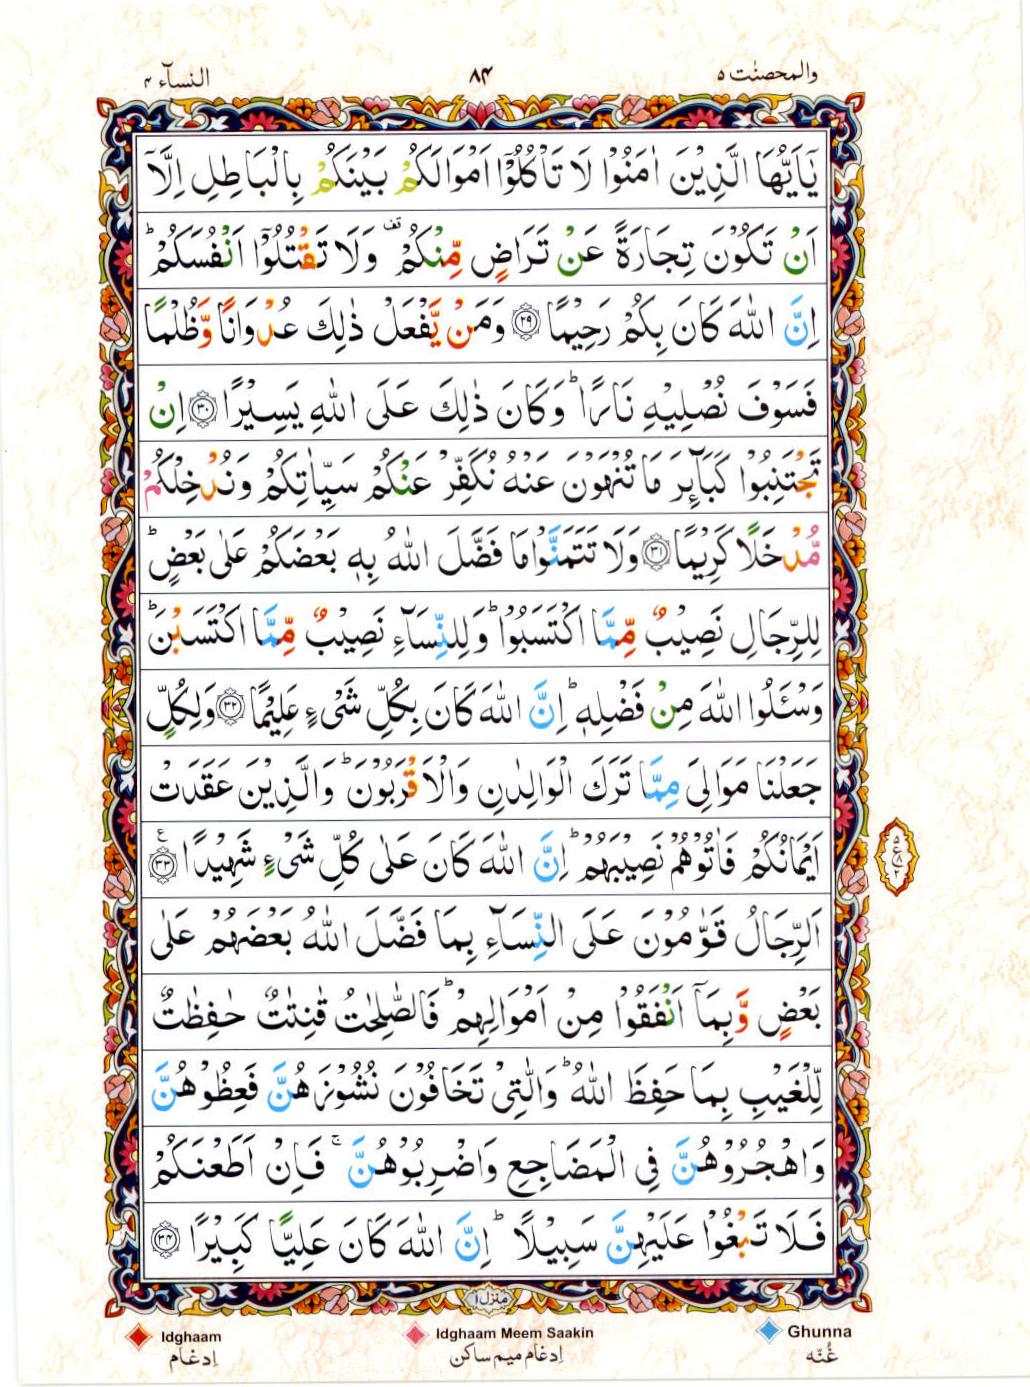 والمحصنٰت ۵
۸۴
النسآء ۴
یٰۤاَیُّهَا الَّذِیْنَ اٰمَنُوْا لَا تَاْكُلُوْۤا اَمْوَالَكُمْ بَیْنَكُمْ بِالْبَاطِلِ اِلَّاۤ
اَنْ تَكُوْنَ تِجَارَةً عَنْ تَرَاضٍ مِّنْكُمْ ۫ وَلَا تَقْتُلُوْۤا اَنْفُسَكُمْ ؕ
اِنَّ اللّٰهَ كَانَ بِكُمْ رَحِیْمًا ﴿۲۹﴾ وَمَنْ یَّفْعَلْ ذٰلِكَ عُدْوَانًا وَّظُلْمًا
فَسَوْفَ نُصْلِیْهِ نَارًا ؕ وَكَانَ ذٰلِكَ عَلَی اللّٰهِ یَسِیْرًا ﴿۳۰﴾ اِنْ
تَجْتَنِبُوْا كَبَآىِٕرَ مَا تُنْهَوْنَ عَنْهُ نُكَفِّرْ عَنْكُمْ سَیِّاٰتِكُمْ وَنُدْخِلْكُمْ
مُّدْخَلًا كَرِیْمًا ﴿۳۱﴾ وَلَا تَتَمَنَّوْا مَا فَضَّلَ اللّٰهُ بِهٖ بَعْضَكُمْ عَلٰی بَعْضٍ ؕ
لِلرِّجَالِ نَصِیْبٌ مِّمَّا اكْتَسَبُوْا ؕ وَلِلنِّسَآءِ نَصِیْبٌ مِّمَّا اكْتَسَبْنَ ؕ
وَسْـَٔلُوا اللّٰهَ مِنْ فَضْلِهٖ ؕ اِنَّ اللّٰهَ كَانَ بِكُلِّ شَیْءٍ عَلِیْمًا ﴿۳۲﴾ وَلِكُلٍّ
جَعَلْنَا مَوَالِیَ مِمَّا تَرَكَ الْوَالِدٰنِ وَالْاَقْرَبُوْنَ ؕ وَالَّذِیْنَ عَقَدَتْ
اَیْمَانُكُمْ فَاٰتُوْهُمْ نَصِیْبَهُمْ ؕ اِنَّ اللّٰهَ كَانَ عَلٰی كُلِّ شَیْءٍ شَهِیْدًا ﴿۳۳﴾ ع
اَلرِّجَالُ قَوّٰمُوْنَ عَلَی النِّسَآءِ بِمَا فَضَّلَ اللّٰهُ بَعْضَهُمْ عَلٰی
بَعْضٍ وَّبِمَاۤ اَنْفَقُوْا مِنْ اَمْوَالِهِمْ ؕ فَالصّٰلِحٰتُ قٰنِتٰتٌ حٰفِظٰتٌ
لِّلْغَیْبِ بِمَا حَفِظَ اللّٰهُ ؕ وَالّٰتِیْ تَخَافُوْنَ نُشُوْزَهُنَّ فَعِظُوْهُنَّ
وَاهْجُرُوْهُنَّ فِی الْمَضَاجِعِ وَاضْرِبُوْهُنَّ ۚ فَاِنْ اَطَعْنَكُمْ
فَلَا تَبْغُوْا عَلَیْهِنَّ سَبِیْلًا ؕ اِنَّ اللّٰهَ كَانَ عَلِیًّا كَبِیْرًا ﴿۳۴﴾
۵
ع ۸
۲
منزل ۱
Idghaam
Idghaam Meem Saakin
Ghunna
اِدغام
اِدغام میم ساکن
غُنّه